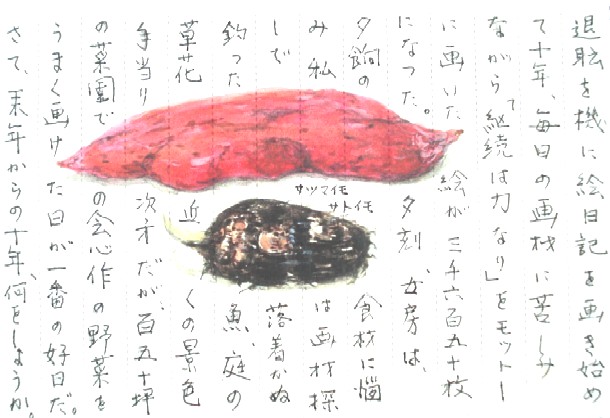 退職を機に絵日記を画き始め
て十年、毎日の画材に苦しみ
ながら「継続は力なり」をモットー
に画いた絵が三千六百五十枚
になった。夕刻、女房は、
夕餉の食材に悩
み私は画材探
しで落着かぬ
釣った魚、庭の
草花近くの景色
手当り次才だが、百五十坪
の菜園での会心作の野菜を
うまく画けた日が一番の好日だ。
さて、来年からの十年、何をしようか。
サツマイモ
サトイモ